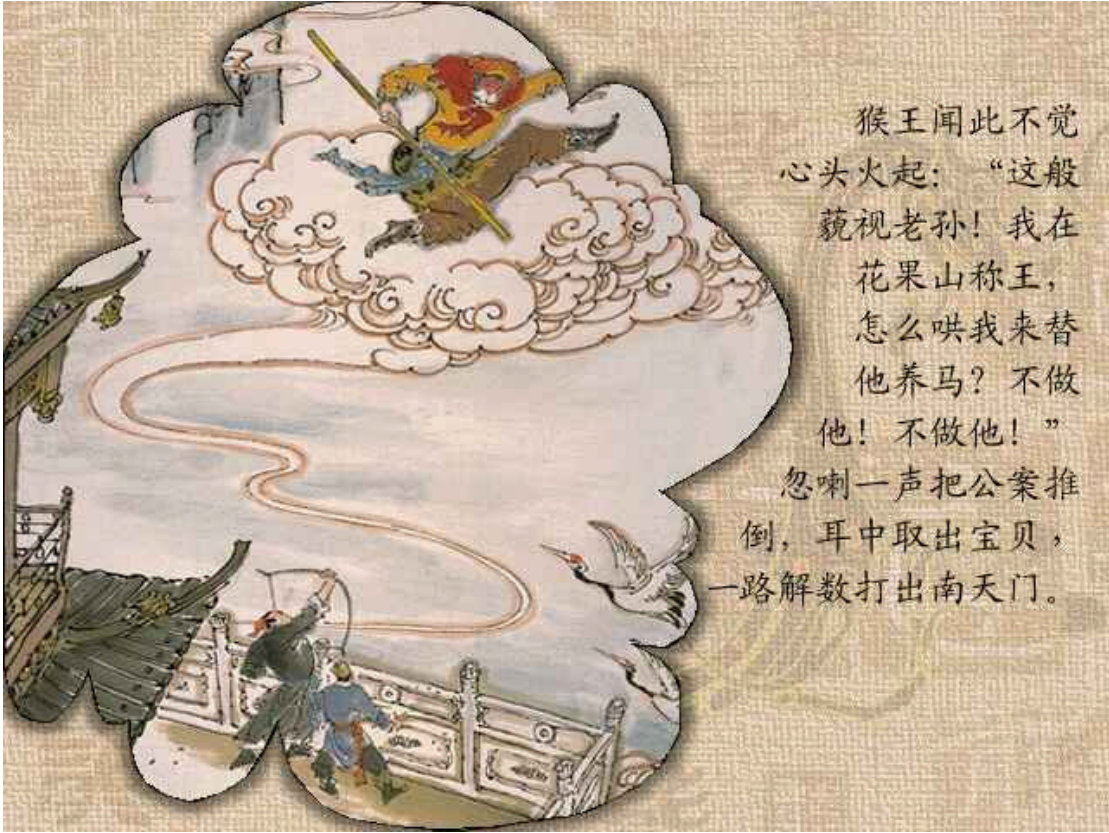 猴王闻此不觉
心头火起：“这般
藐视老孙！我在
花果山称王，
怎么哄我来替
他养马？不做
他！不做他！”
忽喇一声把公案推
倒，耳中取出宝贝，
一路解数打出南天门。